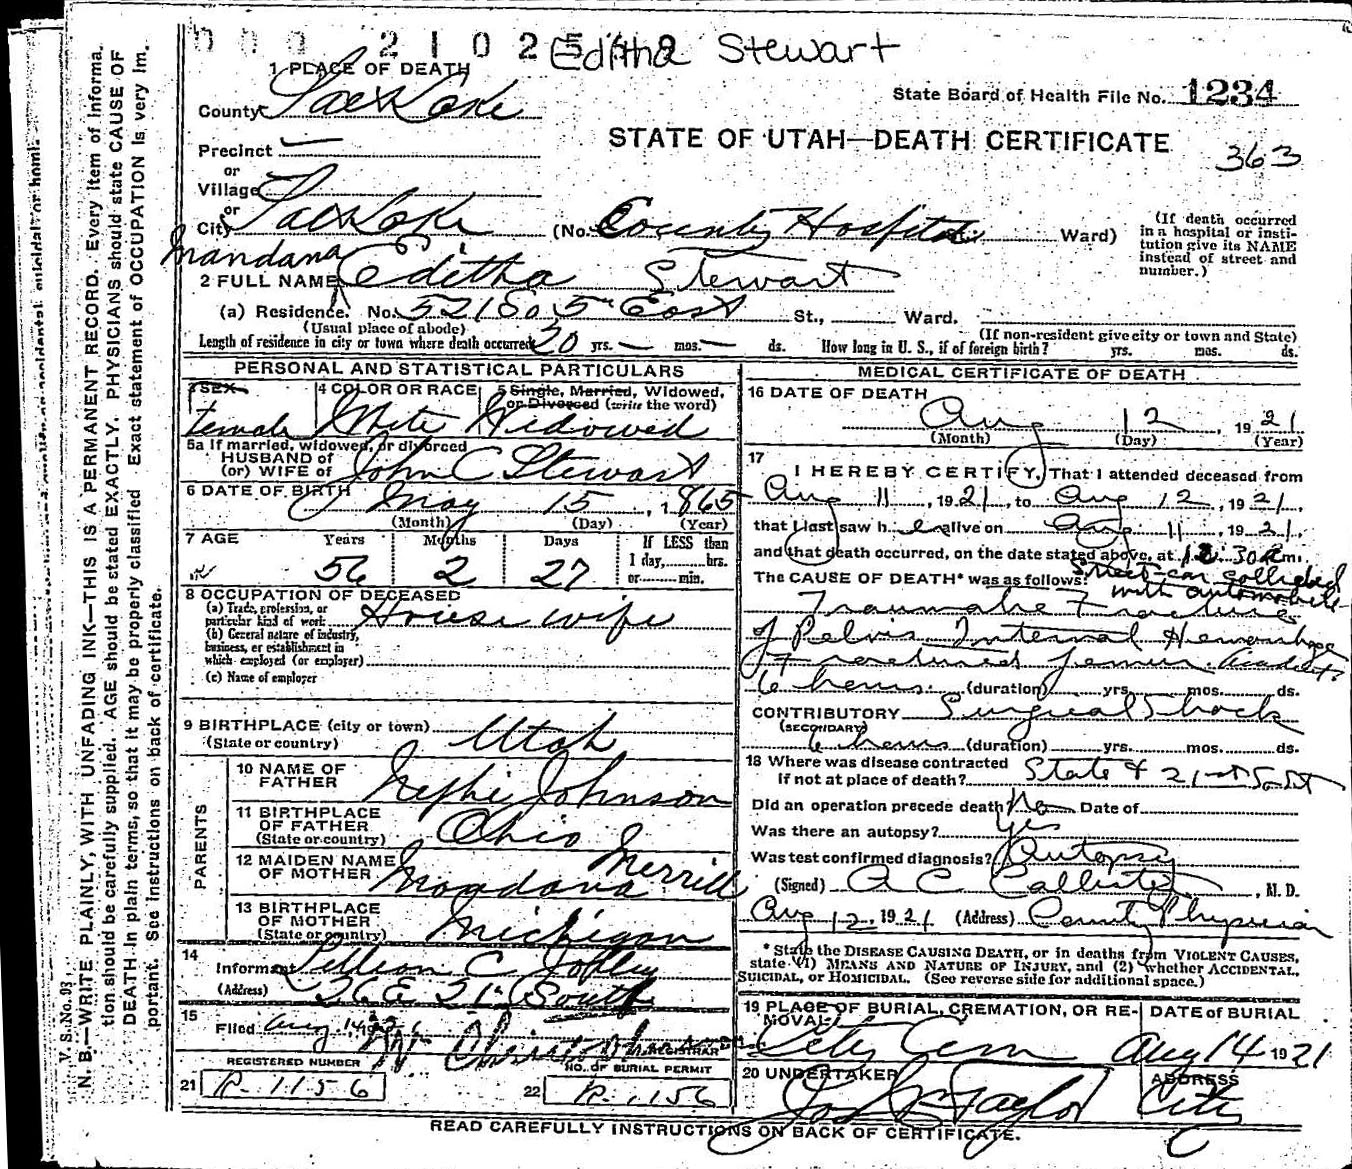 Editha Stewart
1 PLACE OF DEATH
County Salt Lake
State Board of Health File No. 1234
STATE OF UTAH—DEATH CERTIFICATE
363
Precinct —
or
Village
or
City Salt Lake (No. County Hospital Ward)
(If death occurred in a hospital or institution give its NAME instead of street and number.)
Mandana
2 FULL NAME Editha Stewart
(a) Residence. No. 521 So. 5 East St., Ward.
(Usual place of abode) (If non-resident give city or town and State)
Length of residence in city or town where death occurred 20 yrs. — mos. — ds. How long in U. S., if of foreign birth? yrs. mos. ds.
PERSONAL AND STATISTICAL PARTICULARS
3 SEX
female
4 COLOR OR RACE
White
5 Single, Married, Widowed, or Divorced (write the word)
Widowed
5a If married, widowed, or divorced
HUSBAND of
(or) WIFE of John C Stewart
6 DATE OF BIRTH May 15, 1865
(Month) (Day) (Year)
7 AGE Years Months Days If LESS than
1 day, hrs.
or min.
56 2 27
8 OCCUPATION OF DECEASED
(a) Trade, profession, or particular kind of work House wife
(b) General nature of industry, business, or establishment in which employed (or employer)
(c) Name of employer
9 BIRTHPLACE (city or town)
(State or country) Utah
PARENTS
10 NAME OF FATHER Nephi Johnson
11 BIRTHPLACE OF FATHER (State or country) Ohio
12 MAIDEN NAME OF MOTHER Mandana Merrill
13 BIRTHPLACE OF MOTHER (State or country) Michigan
14 Informant Lillian C
(Address) 26 E 21st South
15 Filed Aug. 14
REGISTRAR
REGISTERED NUMBER
21 R. 1156
NO. OF BURIAL PERMIT
22 R. 1156
MEDICAL CERTIFICATE OF DEATH
16 DATE OF DEATH
Aug 12, 1921
(Month) (Day) (Year)
17 I HEREBY CERTIFY, That I attended deceased from
Aug 11, 1921, to Aug 12, 1921,
that I last saw h er alive on Aug 11, 1921,
and that death occurred, on the date stated above, at 12:30 a m.
The CAUSE OF DEATH* was as follows: Street car collided
with automobile
Traumatic Fracture
of Pelvis. Internal Hemorrhage
Fractured femur. Accident.
6 hours (duration) yrs. mos. ds.
CONTRIBUTORY Surgical Shock
(SECONDARY)
6 hours (duration) yrs. mos. ds.
18 Where was disease contracted
if not at place of death? State & 21st So. St
Did an operation precede death? No Date of
Was there an autopsy? Yes
Was test confirmed diagnosis? Autopsy
(Signed) A C Callister, M. D.
Aug 12, 1921 (Address) County Physician
* State the DISEASE CAUSING DEATH, or in deaths from VIOLENT CAUSES,
state (1) MEANS AND NATURE OF INJURY, and (2) whether ACCIDENTAL,
SUICIDAL, or HOMICIDAL. (See reverse side for additional space.)
19 PLACE OF BURIAL, CREMATION, OR REMOVAL
City Cem
DATE of BURIAL
Aug 14 1921
20 UNDERTAKER
Jos Taylor
ADDRESS
City
READ CAREFULLY INSTRUCTIONS ON BACK OF CERTIFICATE.
V. S. No. 93.
N. B.—WRITE PLAINLY, WITH UNFADING INK—THIS IS A PERMANENT RECORD. Every item of informa-
tion should be carefully supplied. AGE should be stated EXACTLY. PHYSICIANS should state CAUSE OF
DEATH in plain terms, so that it may be properly classified. Exact statement of OCCUPATION is very im-
portant. See instructions on back of certificate.